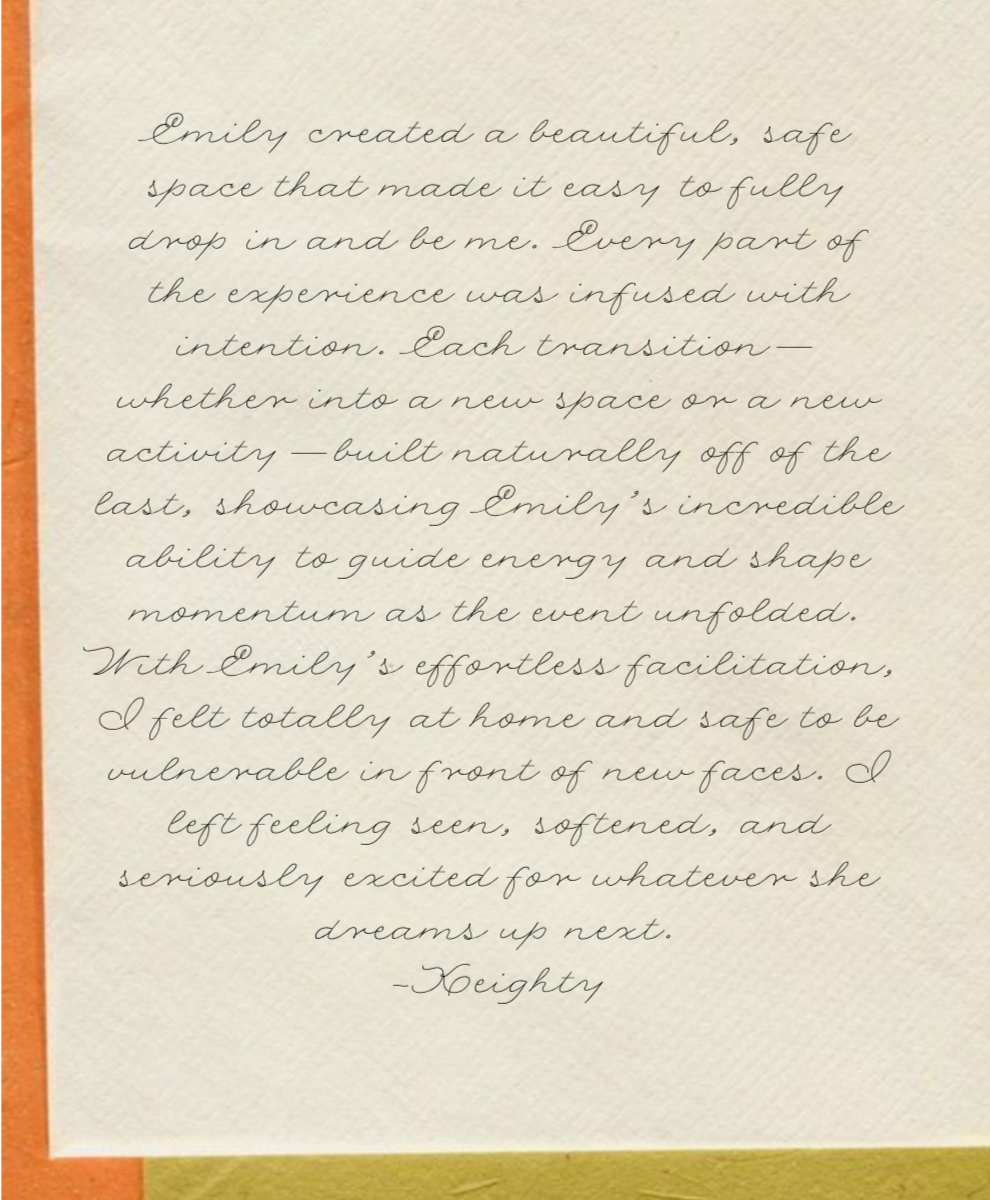 Emily created a beautiful, safe
space that made it easy to fully
drop in and be me. Every part of
the experience was infused with
intention. Each transition—
whether into a new space or a new
activity —built naturally off of the
last, showcasing Emily’s incredible
ability to guide energy and shape
momentum as the event unfolded.
With Emily’s effortless facilitation,
I felt totally at home and safe to be
vulnerable in front of new faces. I
left feeling seen, softened, and
seriously excited for whatever she
dreams up next.
-Keighty